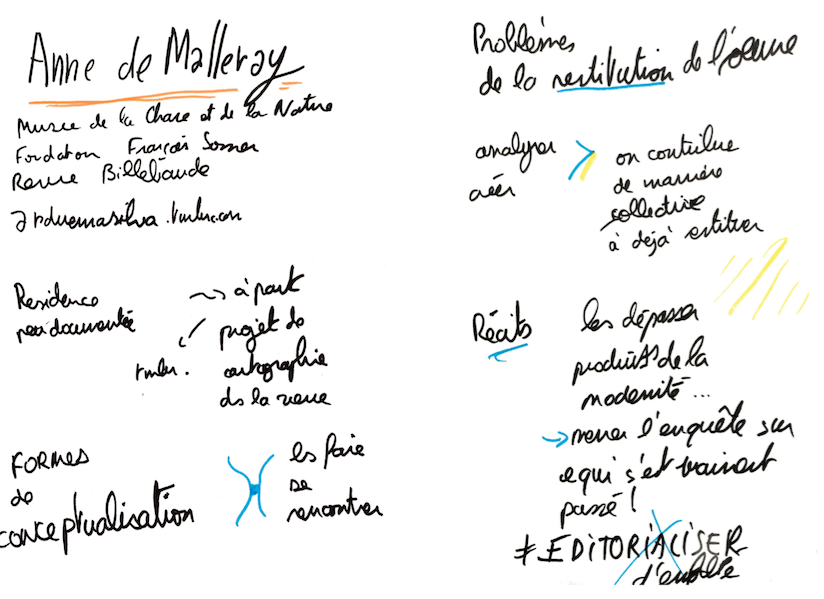 Anne de Malleray
Musée de la Chasse et de la Nature
Fondation François Sommer
Revue Billebaude
.tumblr.com
Residence
peu documentée
à part
projet de
cartographie
ds la revue
tumblr.
FORMES
de
conceptualisation
les faire
se
rencontrer
Problèmes
de la restitution de l'œuvre
analyser
créer
on contribue
de manière
collective
à déjà restituer
Récits
les dépasser
produits de la
modernité ...
mener l'enquête sur
ce qui s'est vraiment
passé !
≠ EDITORIALISER
d'emblée